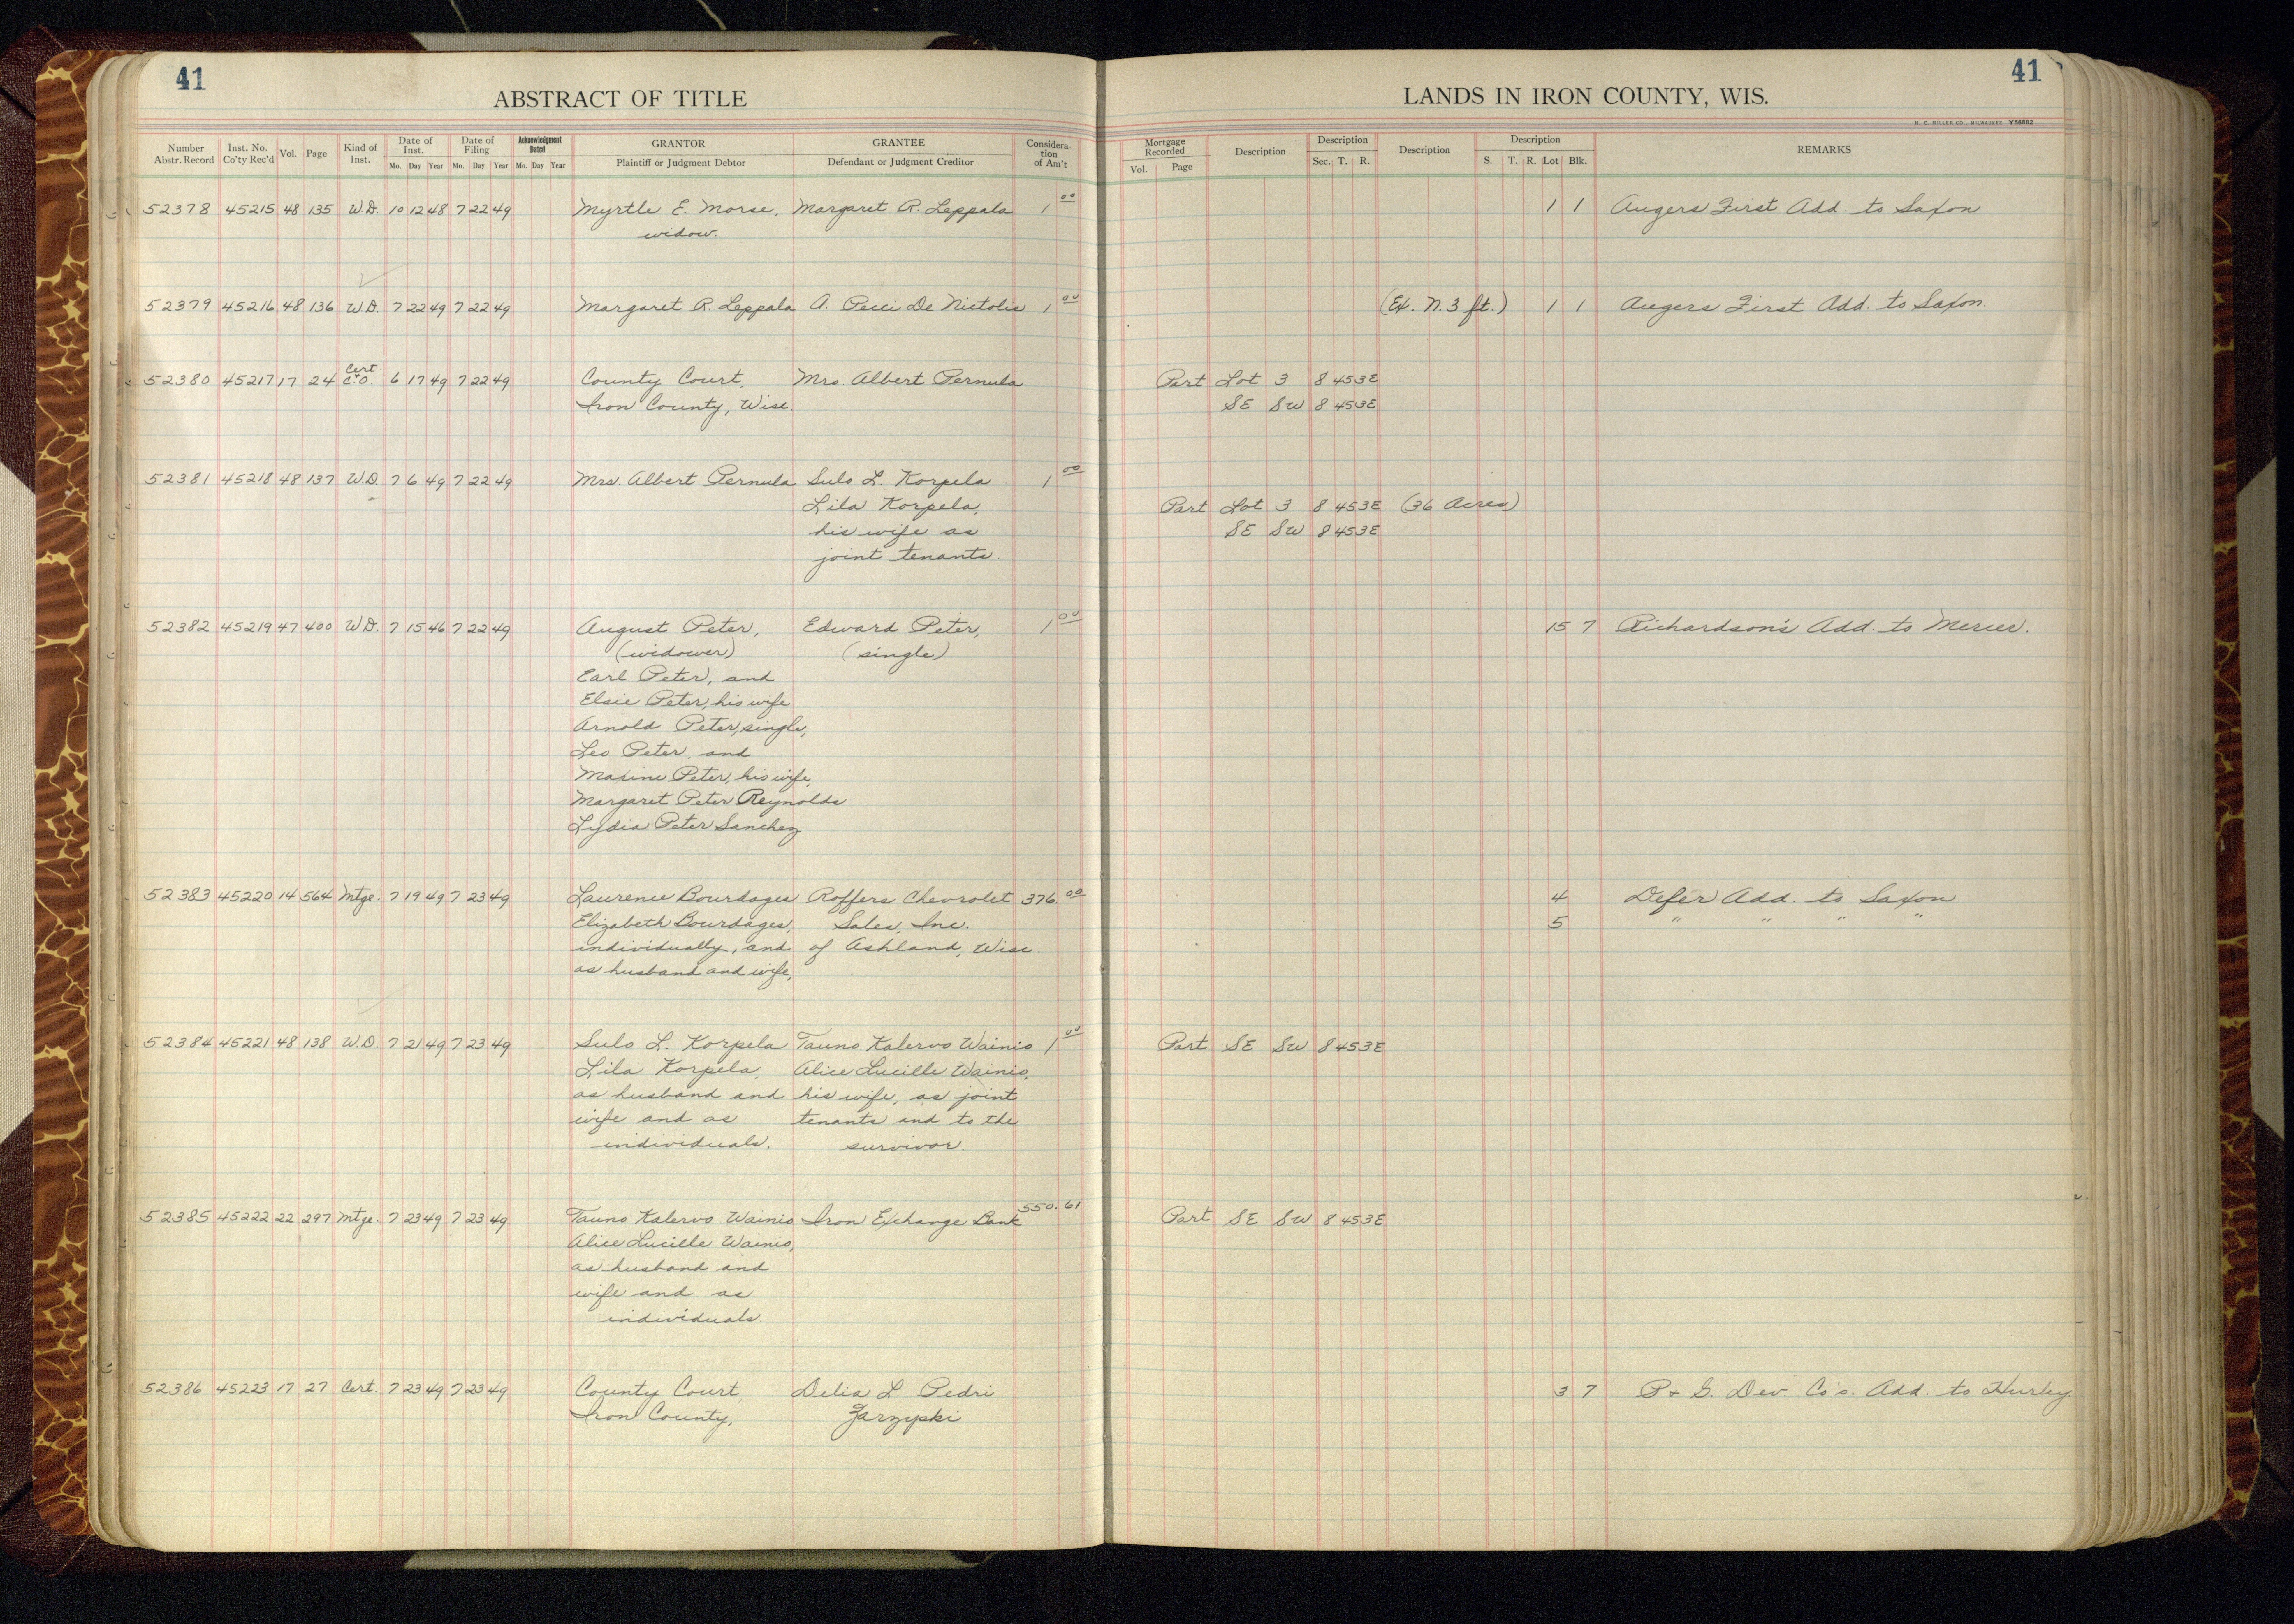 41
ABSTRACT OF TITLE
Number Abstr. Record | Inst. No. Co'ty Rec'd | Vol. | Page | Kind of Inst. | Date of Inst. Mo. Day Year | Date of Filing Mo. Day Year | Acknowledgment Dated Mo. Day Year | GRANTOR Plaintiff or Judgment Debtor | GRANTEE Defendant or Judgment Creditor | Considera-tion of Am't
52378 45215 48 135 W.D. 10 12 48 7 22 49 Myrtle E. Morse, Margaret R. Leppala 1 00
widow.
52379 45216 48 136 W.D. 7 22 49 7 22 49 Margaret R. Leppala A. Pecci De Nictolis 1 00
Cert.
52380 45217 17 24 C.O. 6 17 49 7 22 49 County Court, Mrs. Albert Pernula
Iron County, Wisc.
52381 45218 48 137 W.D. 7 6 49 7 22 49 Mrs. Albert Pernula Sulo L. Korpela 1 00
Lila Korpela,
his wife as
joint tenants.
52382 45219 47 400 W.D. 7 15 46 7 22 49 August Peter, Edward Peter, 1 00
(widower) (single)
Earl Peter, and
Elsie Peter, his wife
Arnold Peter, single,
Leo Peter, and
Maxine Peter, his wife,
Margaret Peter Reynolds
Lydia Peter Sanchez
52383 45220 14 564 Mtge. 7 19 49 7 23 49 Laurence Bourdages Roffers Chevrolet 376.00
Elizabeth Bourdages, Sales, Inc.
individually, and of Ashland, Wisc.
as husband and wife,
52384 45221 48 138 W.D. 7 21 49 7 23 49 Sulo L. Korpela Tauno Kalervo Wainio 1 00
Lila Korpela, Alice Lucille Wainio,
as husband and his wife, as joint
wife and as tenants and to the
individuals. survivor.
52385 45222 22 297 Mtge. 7 23 49 7 23 49 Tauno Kalervo Wainio Iron Exchange Bank 550.61
Alice Lucille Wainio,
as husband and
wife and as
individuals.
52386 45223 17 27 Cert. 7 23 49 7 23 49 County Court, Delia L. Pedri
Iron County, Zarzyski
41
LANDS IN IRON COUNTY, WIS.
H. C. MILLER CO., MILWAUKEE Y58862
Mortgage Recorded Vol. Page | Description | Description Sec. T. R. | Description | Description S. T. R. Lot Blk. | REMARKS
1 1 Augers First Add. to Saxon
(Ex. N. 3 ft.) 1 1 Augers First Add. to Saxon.
Part Lot 3 8 45 3E
SE SW 8 45 3E
Part Lot 3 8 45 3E (36 Acres)
SE SW 8 45 3E
15 7 Richardson's Add. to Mercer.
4 Defer Add. to Saxon
5 " " " "
Part SE SW 8 45 3E
Part SE SW 8 45 3E
3 7 P + G. Dev. Co's. Add. to Hurley